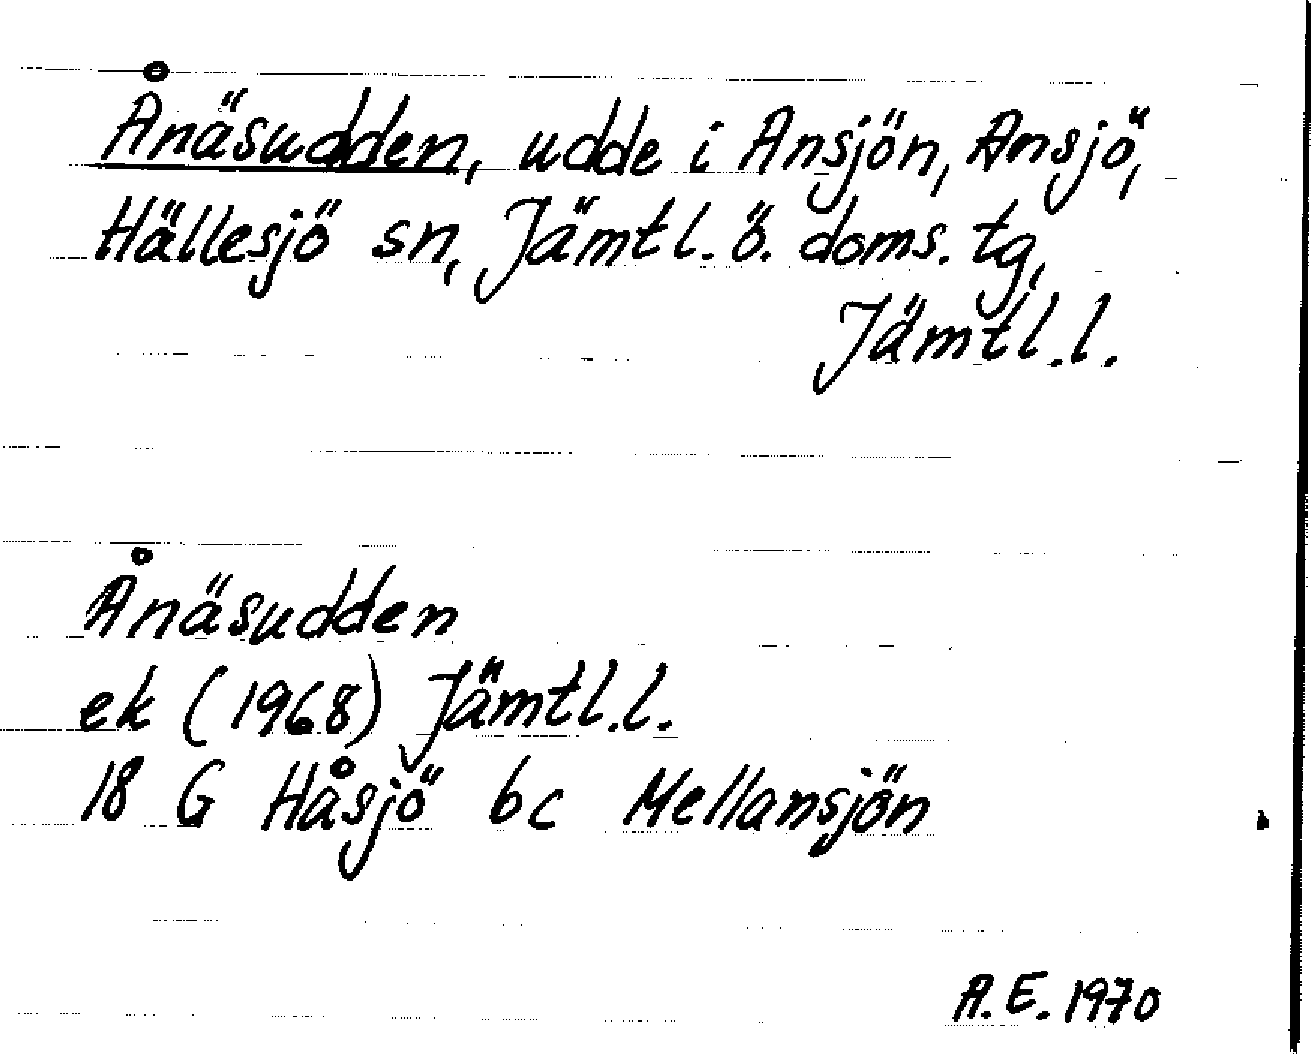 Ånäsudden, udde i Ansjön, Ansjö,
Hällesjö sn, Jämtl. ö. doms. tg,
Jämtl.l.
Ånäsudden
ek (1968) Jämtl.l.
18 G Håsjö bc Mellansjön
A.E. 1970